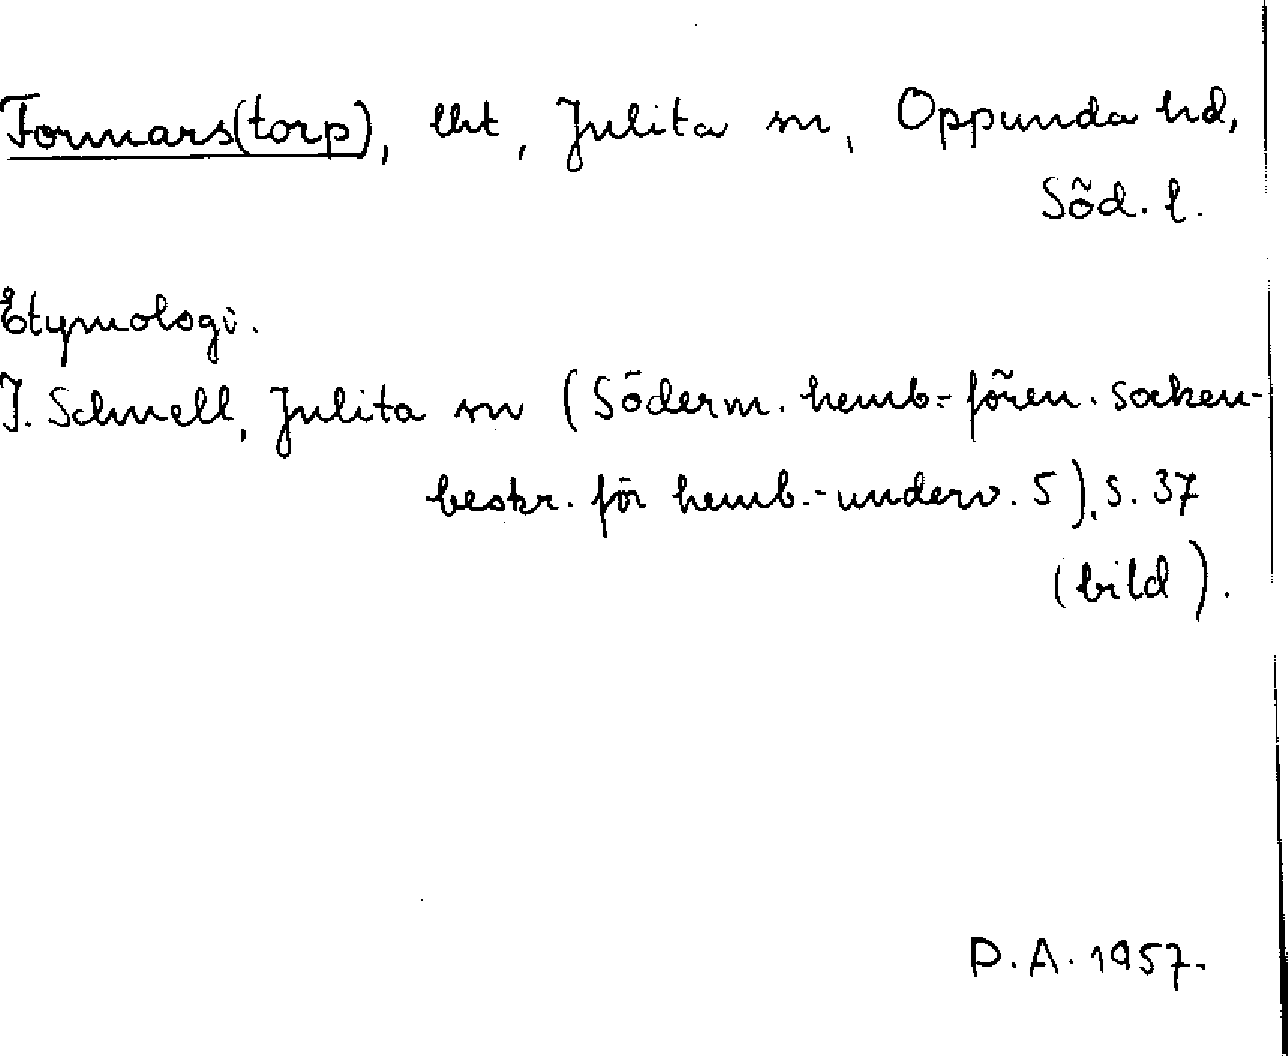 Formars(torp), lht, Julita sn, Oppunda hd,
Söd. l.
Etymologi.
I. Schnell, Julita sn (Söderm. hemb.-fören. socken-
beskr. för hemb.-underv. 5), s. 37
(bild).
D.A. 1957.